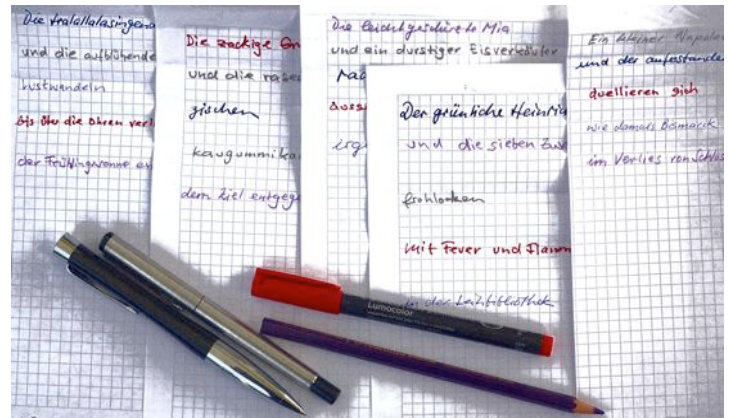 Die tralallalasingend
und die aufblühende
Lustwandeln
bis über die Ohren verl
der Frühlingswonne en
Die zackige
und die rase
zischen
kaugummika
dem Ziel entgege
Die leichtgeschürzte Mia
und ein durstiger Eisverkäufer
Der grünliche Heinri
und die sieben Zw
frohlocken
mit Feuer und Flamm
in der Leihbibliothek
Ein kleiner Napole
und der auferstande
duellieren sich
wie damals Bismarck
im Verlies von Schlos
Lumocolor